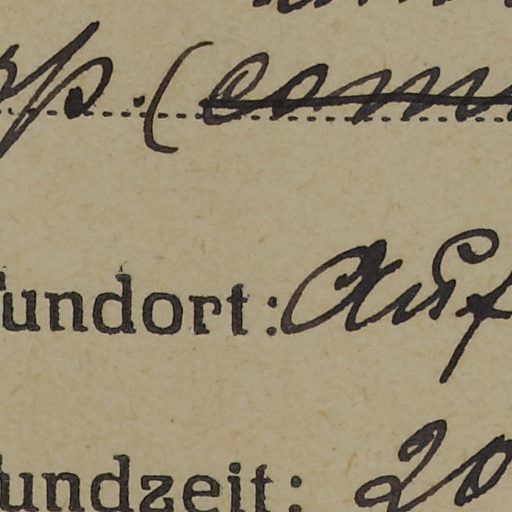 sp. (com
undort: Auf
undzeit: 20